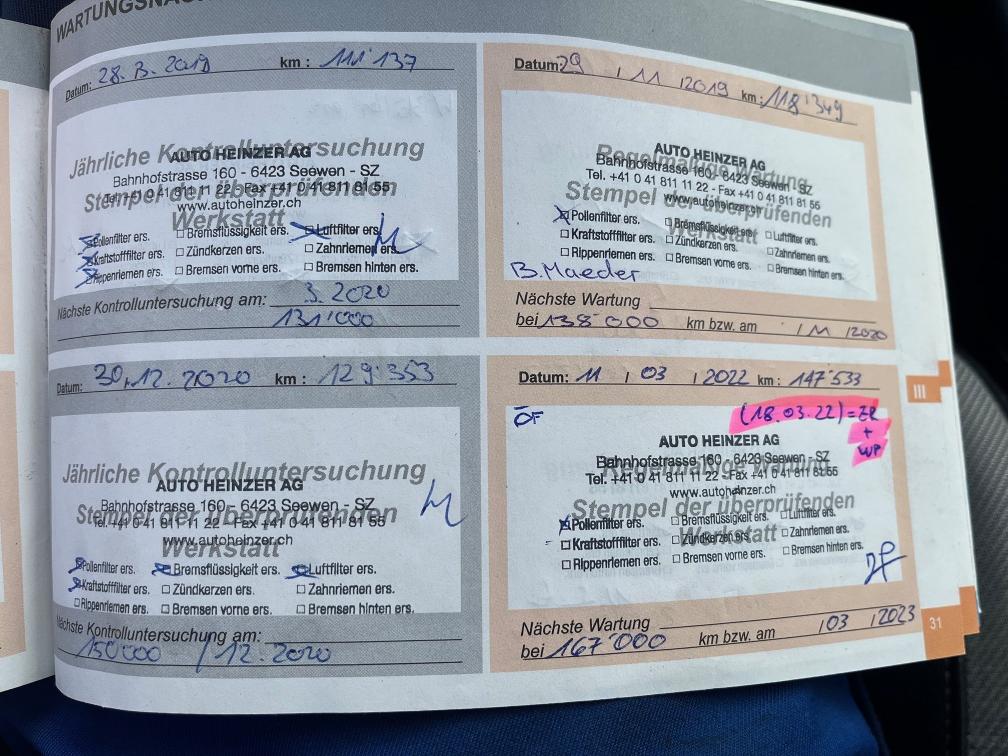 WARTUNGSNAC
Datum: 28. 3. 2019 km: 111'137
Jährliche Kontrolluntersuchung
AUTO HEINZER AG
Bahnhofstrasse 160 - 6423 Seewen - SZ
Stempel der überprüfenden
Tel. +41 0 41 811 11 22 - Fax +41 0 41 811 81 55
www.autoheinzer.ch
Werkstatt
Pollenfilter ers. Bremsflüssigkeit ers. Luftfilter ers.
Kraftstofffilter ers. Zündkerzen ers. Zahnriemen ers.
Rippenriemen ers. Bremsen vorne ers. Bremsen hinten ers.
Nächste Kontrolluntersuchung am: 3. 2020
131'000
Datum: 29 / 11 / 2019 km: 118'349
Regelmäßige Wartung
AUTO HEINZER AG
Bahnhofstrasse 160 - 6423 Seewen SZ
Tel. +41 0 41 811 11 22 - Fax +41 0 41 811 81 55
www.autoheinzer.ch
Stempel der überprüfenden
Werkstatt
Pollenfilter ers. Bremsflüssigkeit ers. Luftfilter ers.
Kraftstofffilter ers. Zündkerzen ers. Zahnriemen ers.
Rippenriemen ers. Bremsen vorne ers. Bremsen hinten ers.
B. Maeder
Nächste Wartung
bei 138'000 km bzw. am / 11 / 2020
Datum: 30. 12. 2020 km: 129'353
Jährliche Kontrolluntersuchung
AUTO HEINZER AG
Bahnhofstrasse 160 - 6423 Seewen - SZ
Stempel der überprüfenden
Tel. +41 0 41 811 11 22 - Fax +41 0 41 811 81 55
www.autoheinzer.ch
Werkstatt
Pollenfilter ers. Bremsflüssigkeit ers. Luftfilter ers.
Kraftstofffilter ers. Zündkerzen ers. Zahnriemen ers.
Rippenriemen ers. Bremsen vorne ers. Bremsen hinten ers.
Nächste Kontrolluntersuchung am:
150'000 / 12. 2020
Datum: 11 / 03 / 2022 km: 147'533
ÖF (18.03.22) = ZR
+
WP
AUTO HEINZER AG
Bahnhofstrasse 160 - 6423 Seewen - SZ
Regelmäßige Wartung
Tel. +41 0 41 811 11 22 - Fax +41 0 41 811 81 55
www.autoheinzer.ch
Stempel der überprüfenden
Werkstatt
Pollenfilter ers. Bremsflüssigkeit ers. Luftfilter ers.
Kraftstofffilter ers. Zündkerzen ers. Zahnriemen ers.
Rippenriemen ers. Bremsen vorne ers. Bremsen hinten ers.
Nächste Wartung
bei 167'000 km bzw. am / 03 / 2023
III
31